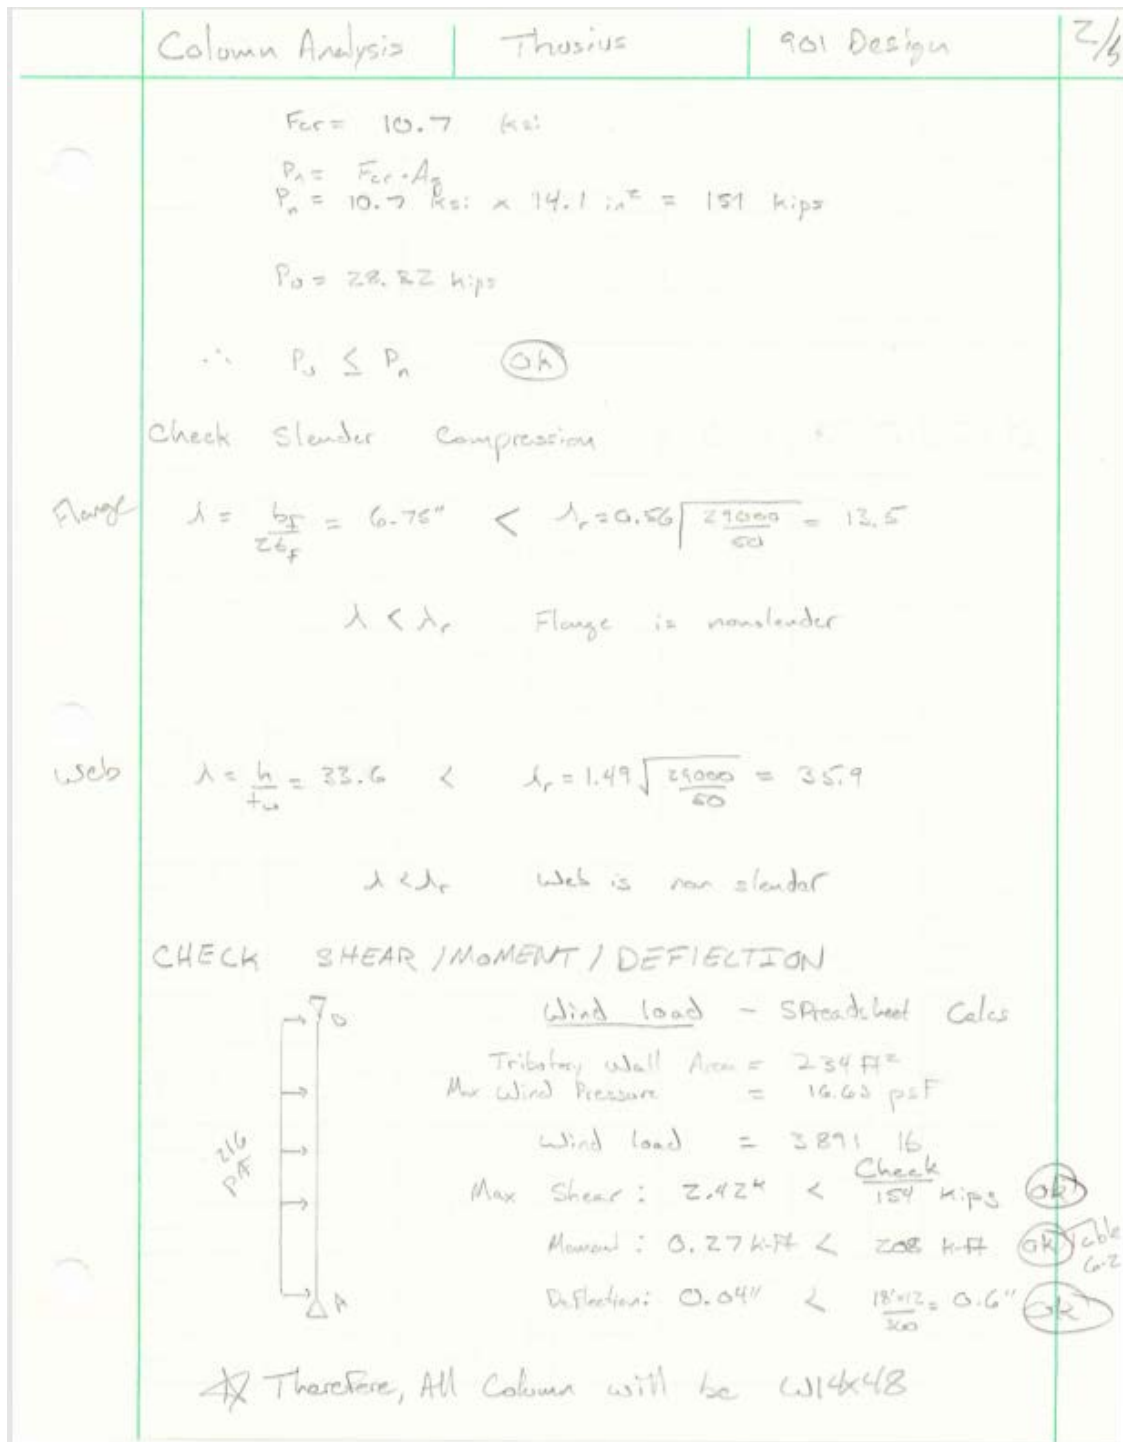 Column Analysis | Thusius | 901 Design | 2/5
Fcr = 10.7 ksi
Pn = Fcr · Ag
Pn = 10.7 ksi x 14.1 in² = 151 kips
Pu = 28.82 kips
∴ Pu ≤ Pn ok
Check Slender Compression
Flange λ = bf/2tf = 6.75" < λr = 0.56 √(29000/50) = 13.5
λ < λr Flange is nonslender
Web λ = h/tw = 33.6 < λr = 1.49 √(29000/50) = 35.9
λ < λr Web is non slender
CHECK SHEAR / MOMENT / DEFLECTION
Wind load - Spreadsheet Calcs
Tributary Wall Area = 234 ft²
Max Wind Pressure = 16.63 psf
Wind load = 3891 lb
216
Check
Max Shear: 2.42k < 154 kips ok
Moment: 0.27 k-ft < 208 k-ft ok Table 6-2
Deflection: 0.04" < 18'x12/360 = 0.6" ok
A
Therefore, All Column will be W14x48